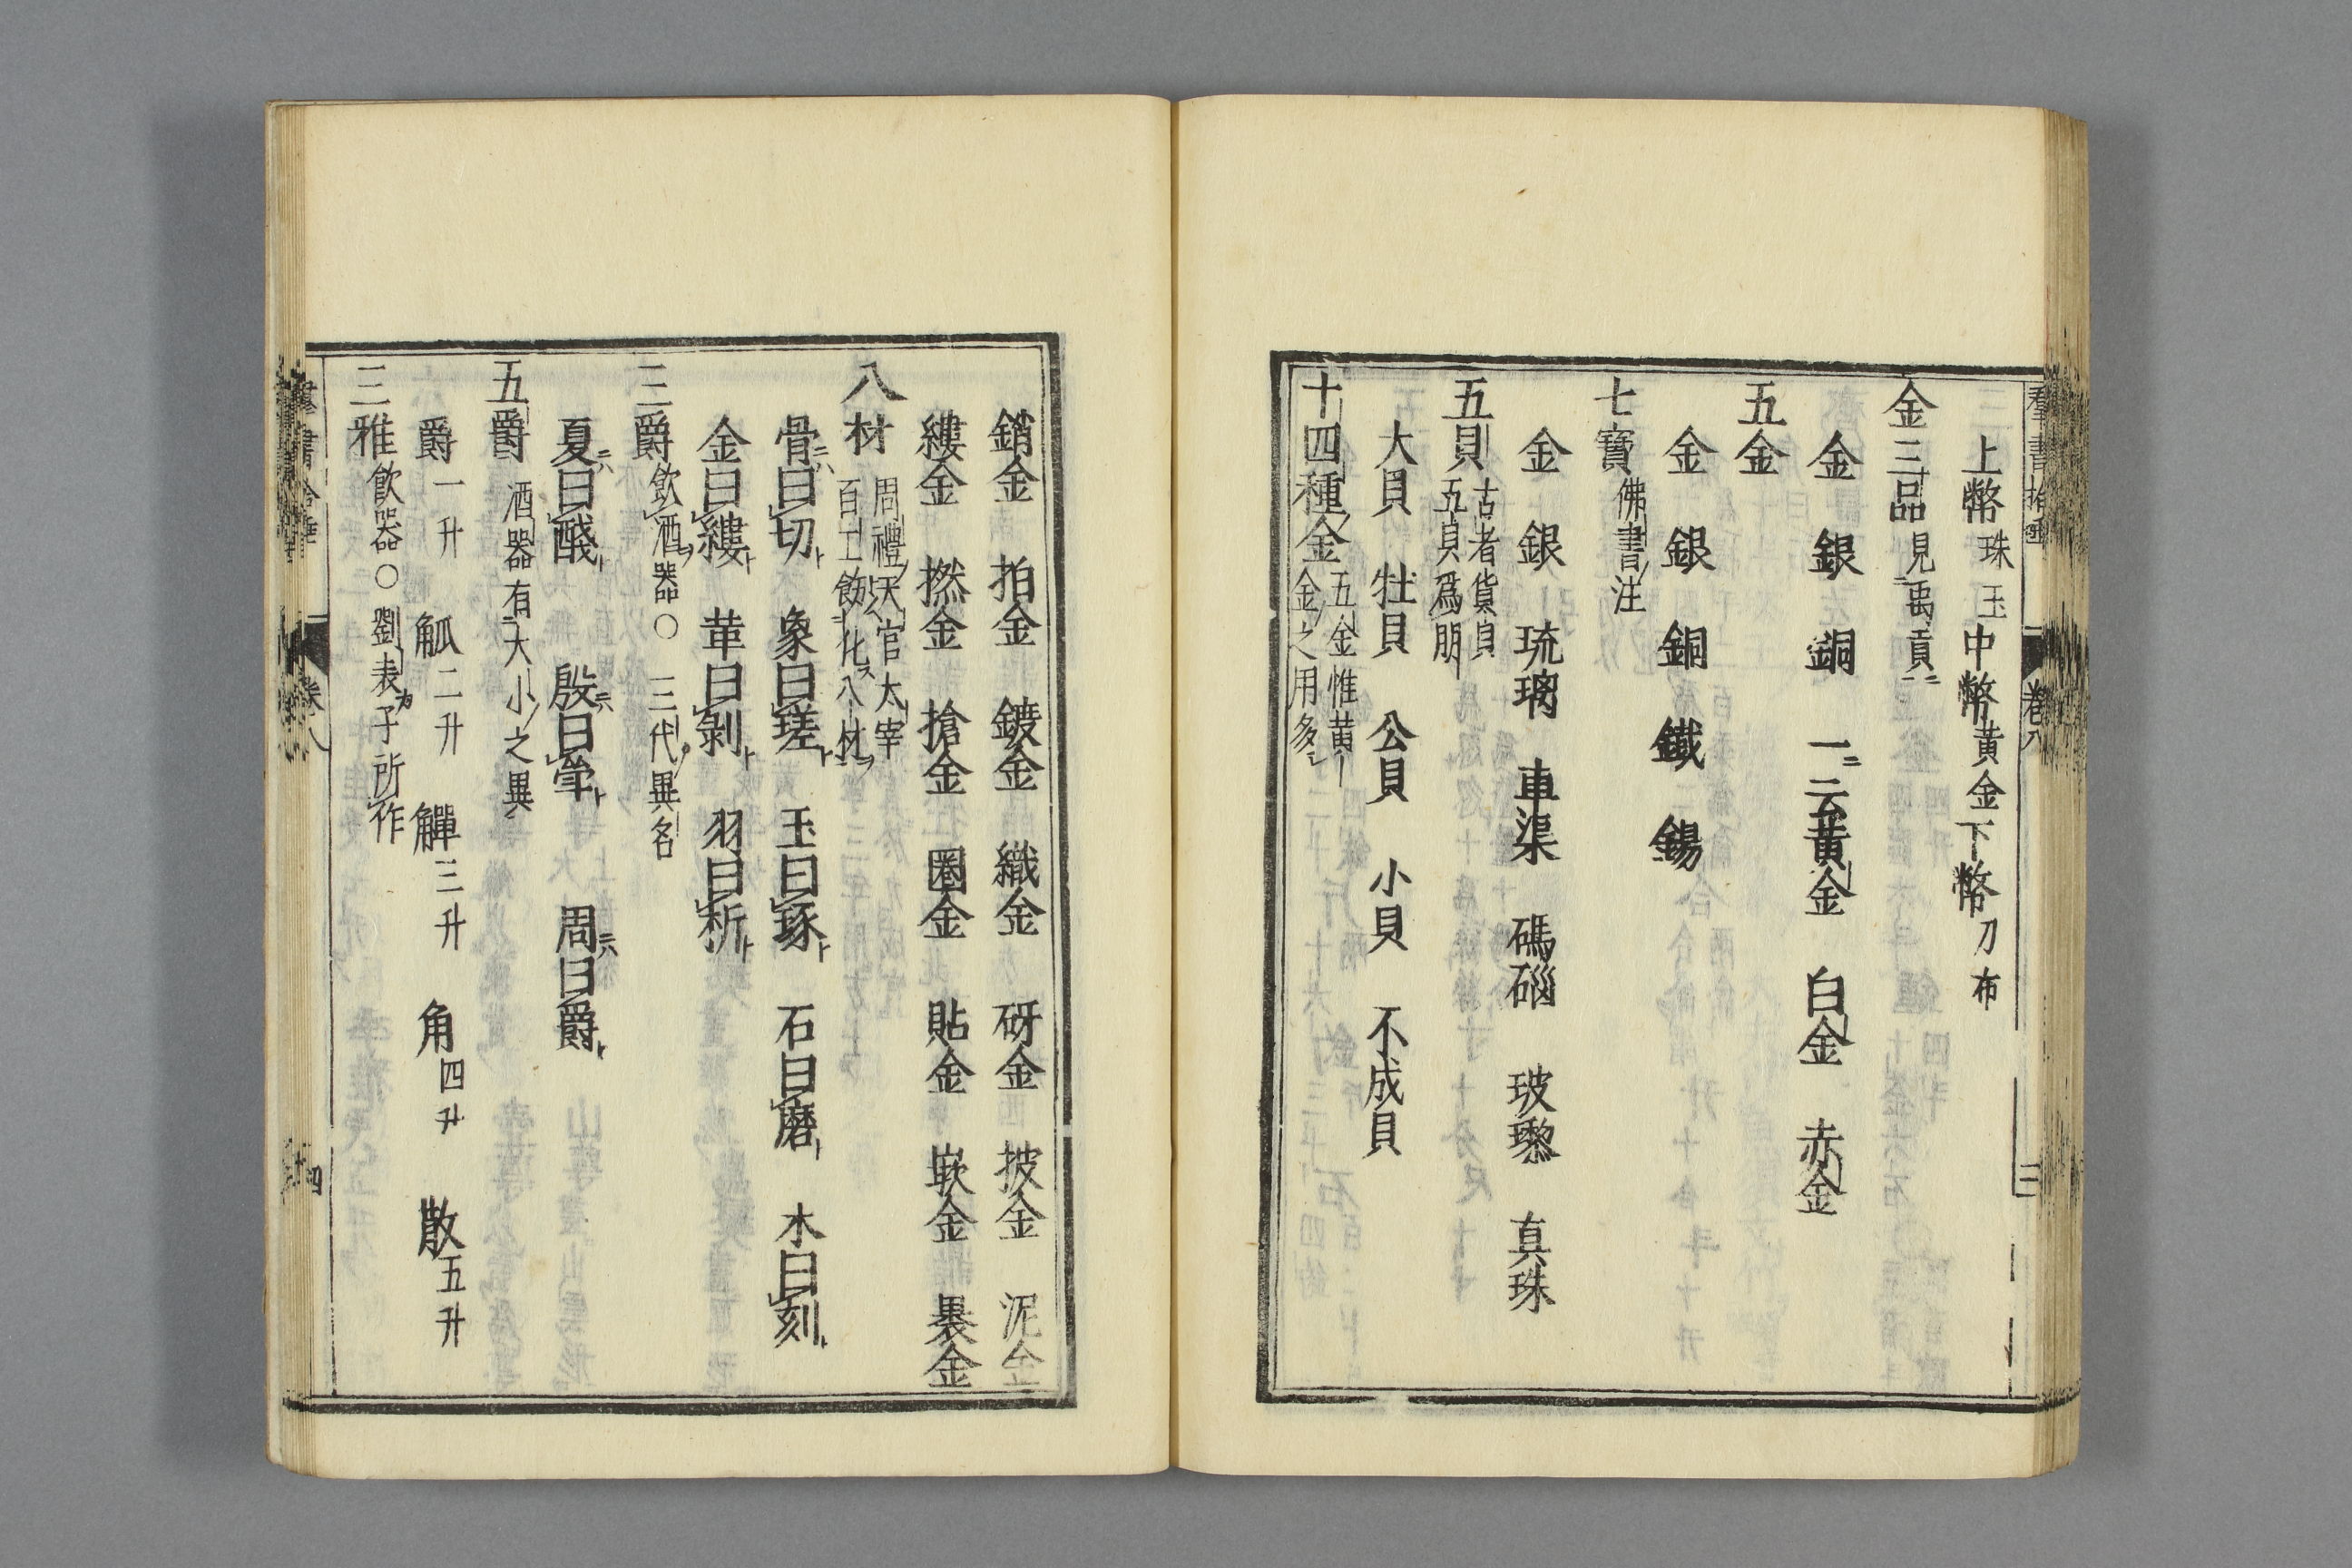 羣書拾唾
卷八
上幣珠玉中幣黄金下幣刀布
金三品見禹貢
金 銀 銅 一云黄金 白金 赤金
五金
金 銀 銅 鐵 錫
七寶佛書注
金 銀 琉璃 車渠 碼碯 玻瓈 真珠
五貝古者貨貝
五貝爲朋
大貝 牡貝 公貝 小貝 不成貝
十四種金五金惟黄
金之用多
銷金 拍金 鍍金 織金 砑金 披金 泥金
縷金 撚金 搶金 圈金 貼金 嵌金 裹金
八材周禮天官太宰
百工飭化八材
骨曰切 象曰瑳 玉曰琢 石曰磨 木曰刻
金曰縷 革曰剝 羽曰析
三爵飲酒器○三代異名
夏曰醆 殷曰斝 周曰爵
五爵酒器有大小之異
爵一升 觚二升 觶三升 角四升 散五升
三雅飲器○劉表子所作
卷八
十四